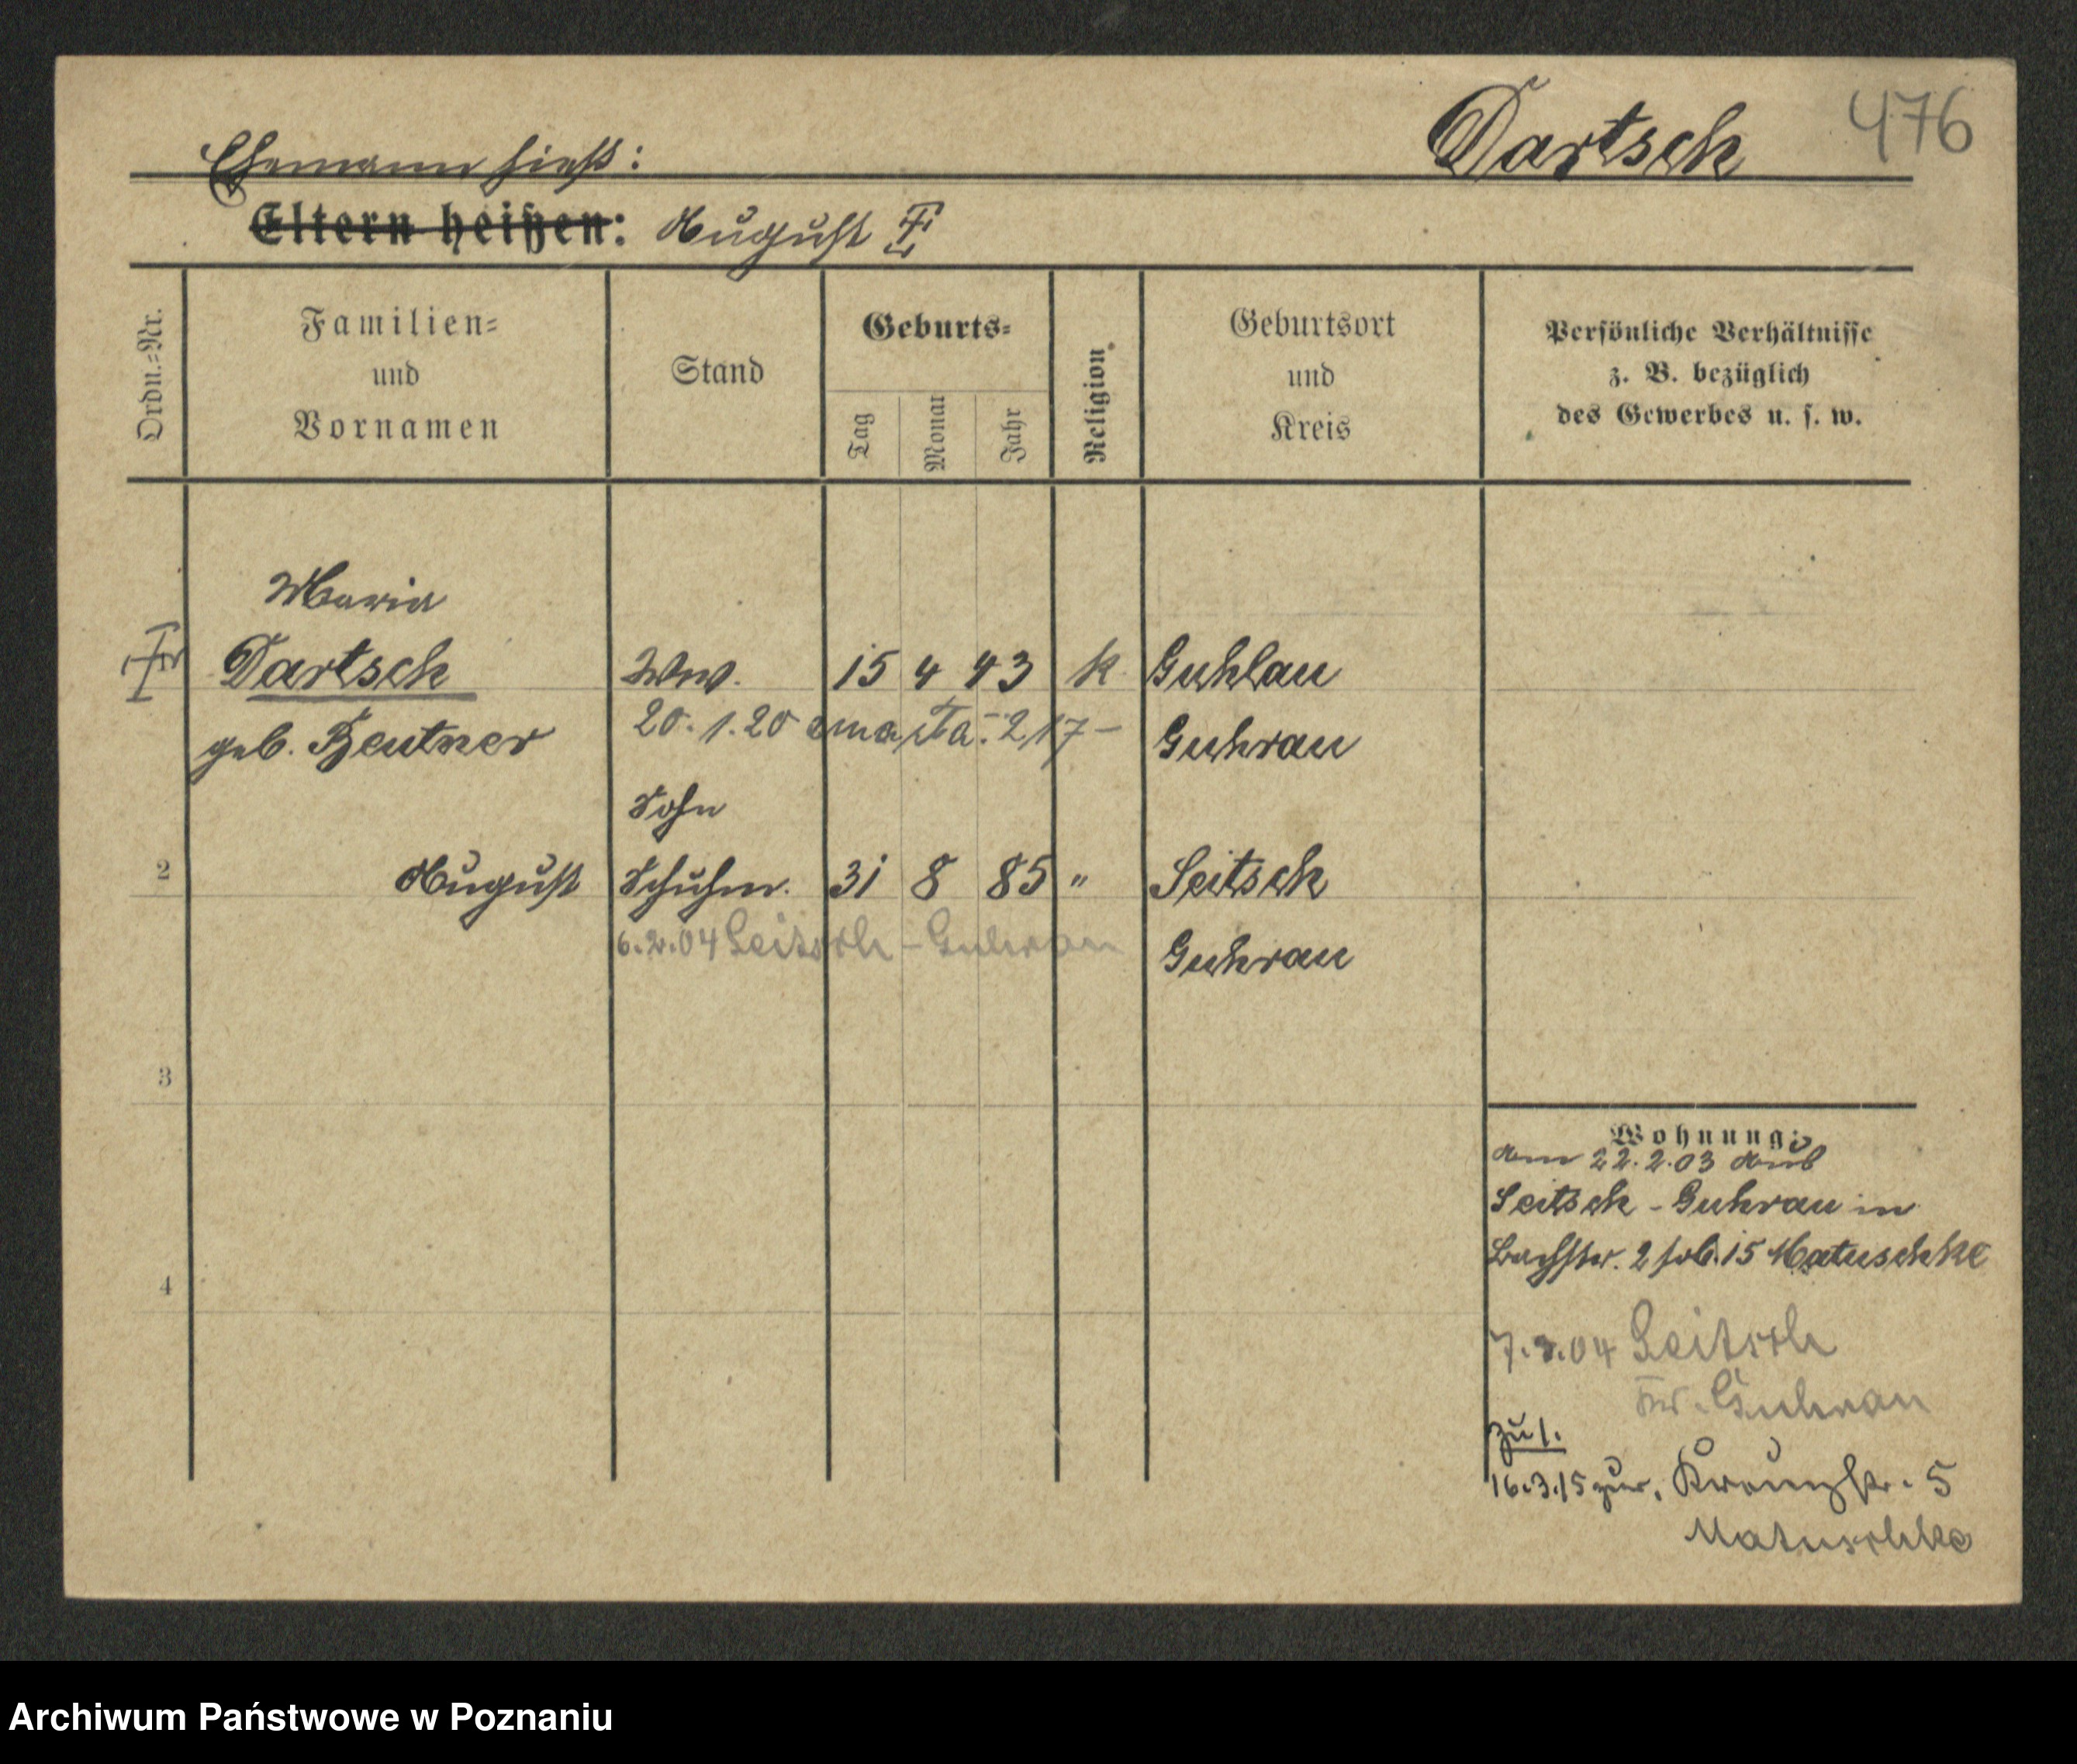 Dartsch 476
Ehemann hieß:
Eltern heißen: August
Ordn.-Nr.
Familien-
und
Vornamen
Stand
Geburts-
Tag
Monat
Jahr
Religion
Geburtsort
und
Kreis
Persönliche Verhältnisse
z. B. bezüglich
des Gewerbes u. s. w.
Maria
Dartsch Ww. 15 4 43 k Guhlau
geb. Beutner 20.1.20 217 Guhrau
Sohn
2 August Schuhm. 31 8 85 " Seitsch
6.2.04 Seitsch - Guhrau Guhrau
3
4
Wohnung:
am 22.2.03 aus
Seitsch - Guhrau in
Bachstr. 2 15 Matuschke
04 Seitsch
Guhrau
zu 1.
16.3.15 zur. 5
Matuschke
Archiwum Państwowe w Poznaniu